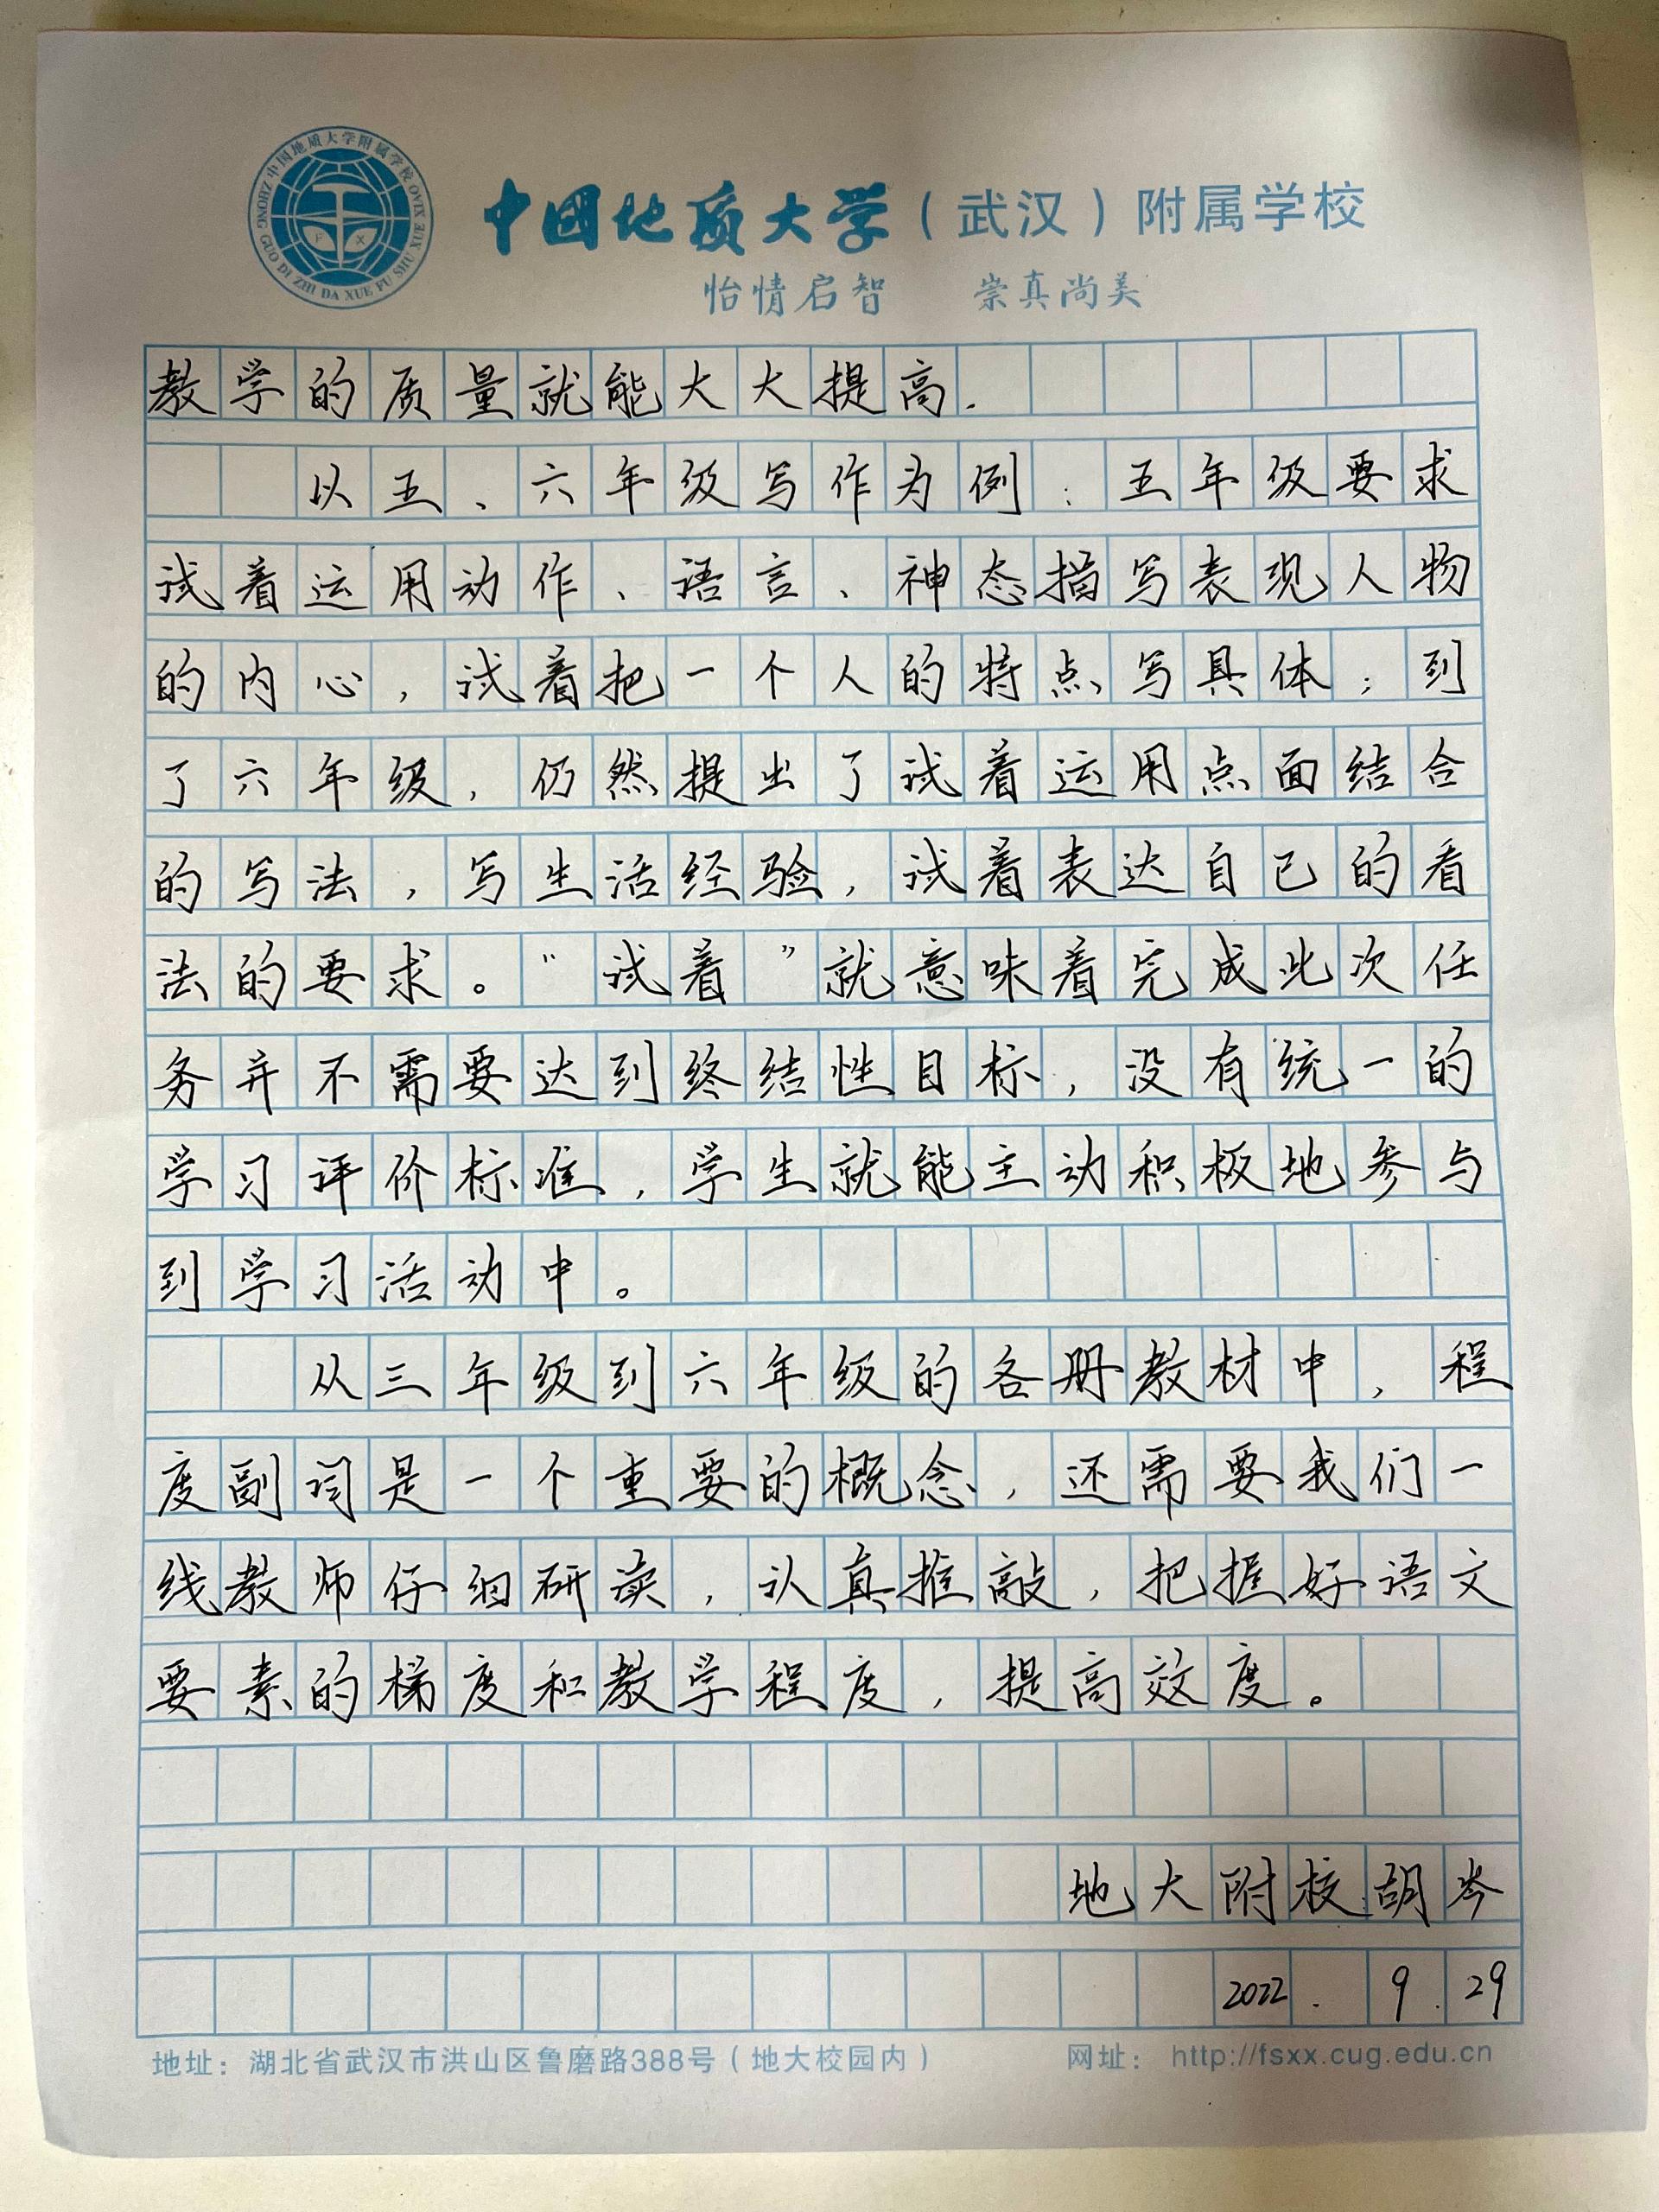 中国地质大学附属学校
ZHONG GUO DI ZHI DA XUE FU SHU XUE XIAO
F X
中国地质大学（武汉）附属学校
怡情启智 崇真尚美
教学的质量就能大大提高.
以五、六年级写作为例：五年级要求
试着运用动作、语言、神态描写表现人物
的内心，试着把一个人的特点写具体；到
了六年级，仍然提出了试着运用点面结合
的写法，写生活经验，试着表达自己的看
法的要求。“试着”就意味着完成此次任
务并不需要达到终结性目标，没有统一的
学习评价标准，学生就能主动积极地参与
到学习活动中。
从三年级到六年级的各册教材中，程
度副词是一个重要的概念，还需要我们一
线教师仔细研读，认真推敲，把握好语文
要素的梯度和教学程度，提高效度。
地大附校胡岑
2022.9.29
地址：湖北省武汉市洪山区鲁磨路388号（地大校园内） 网址：http://fsxx.cug.edu.cn